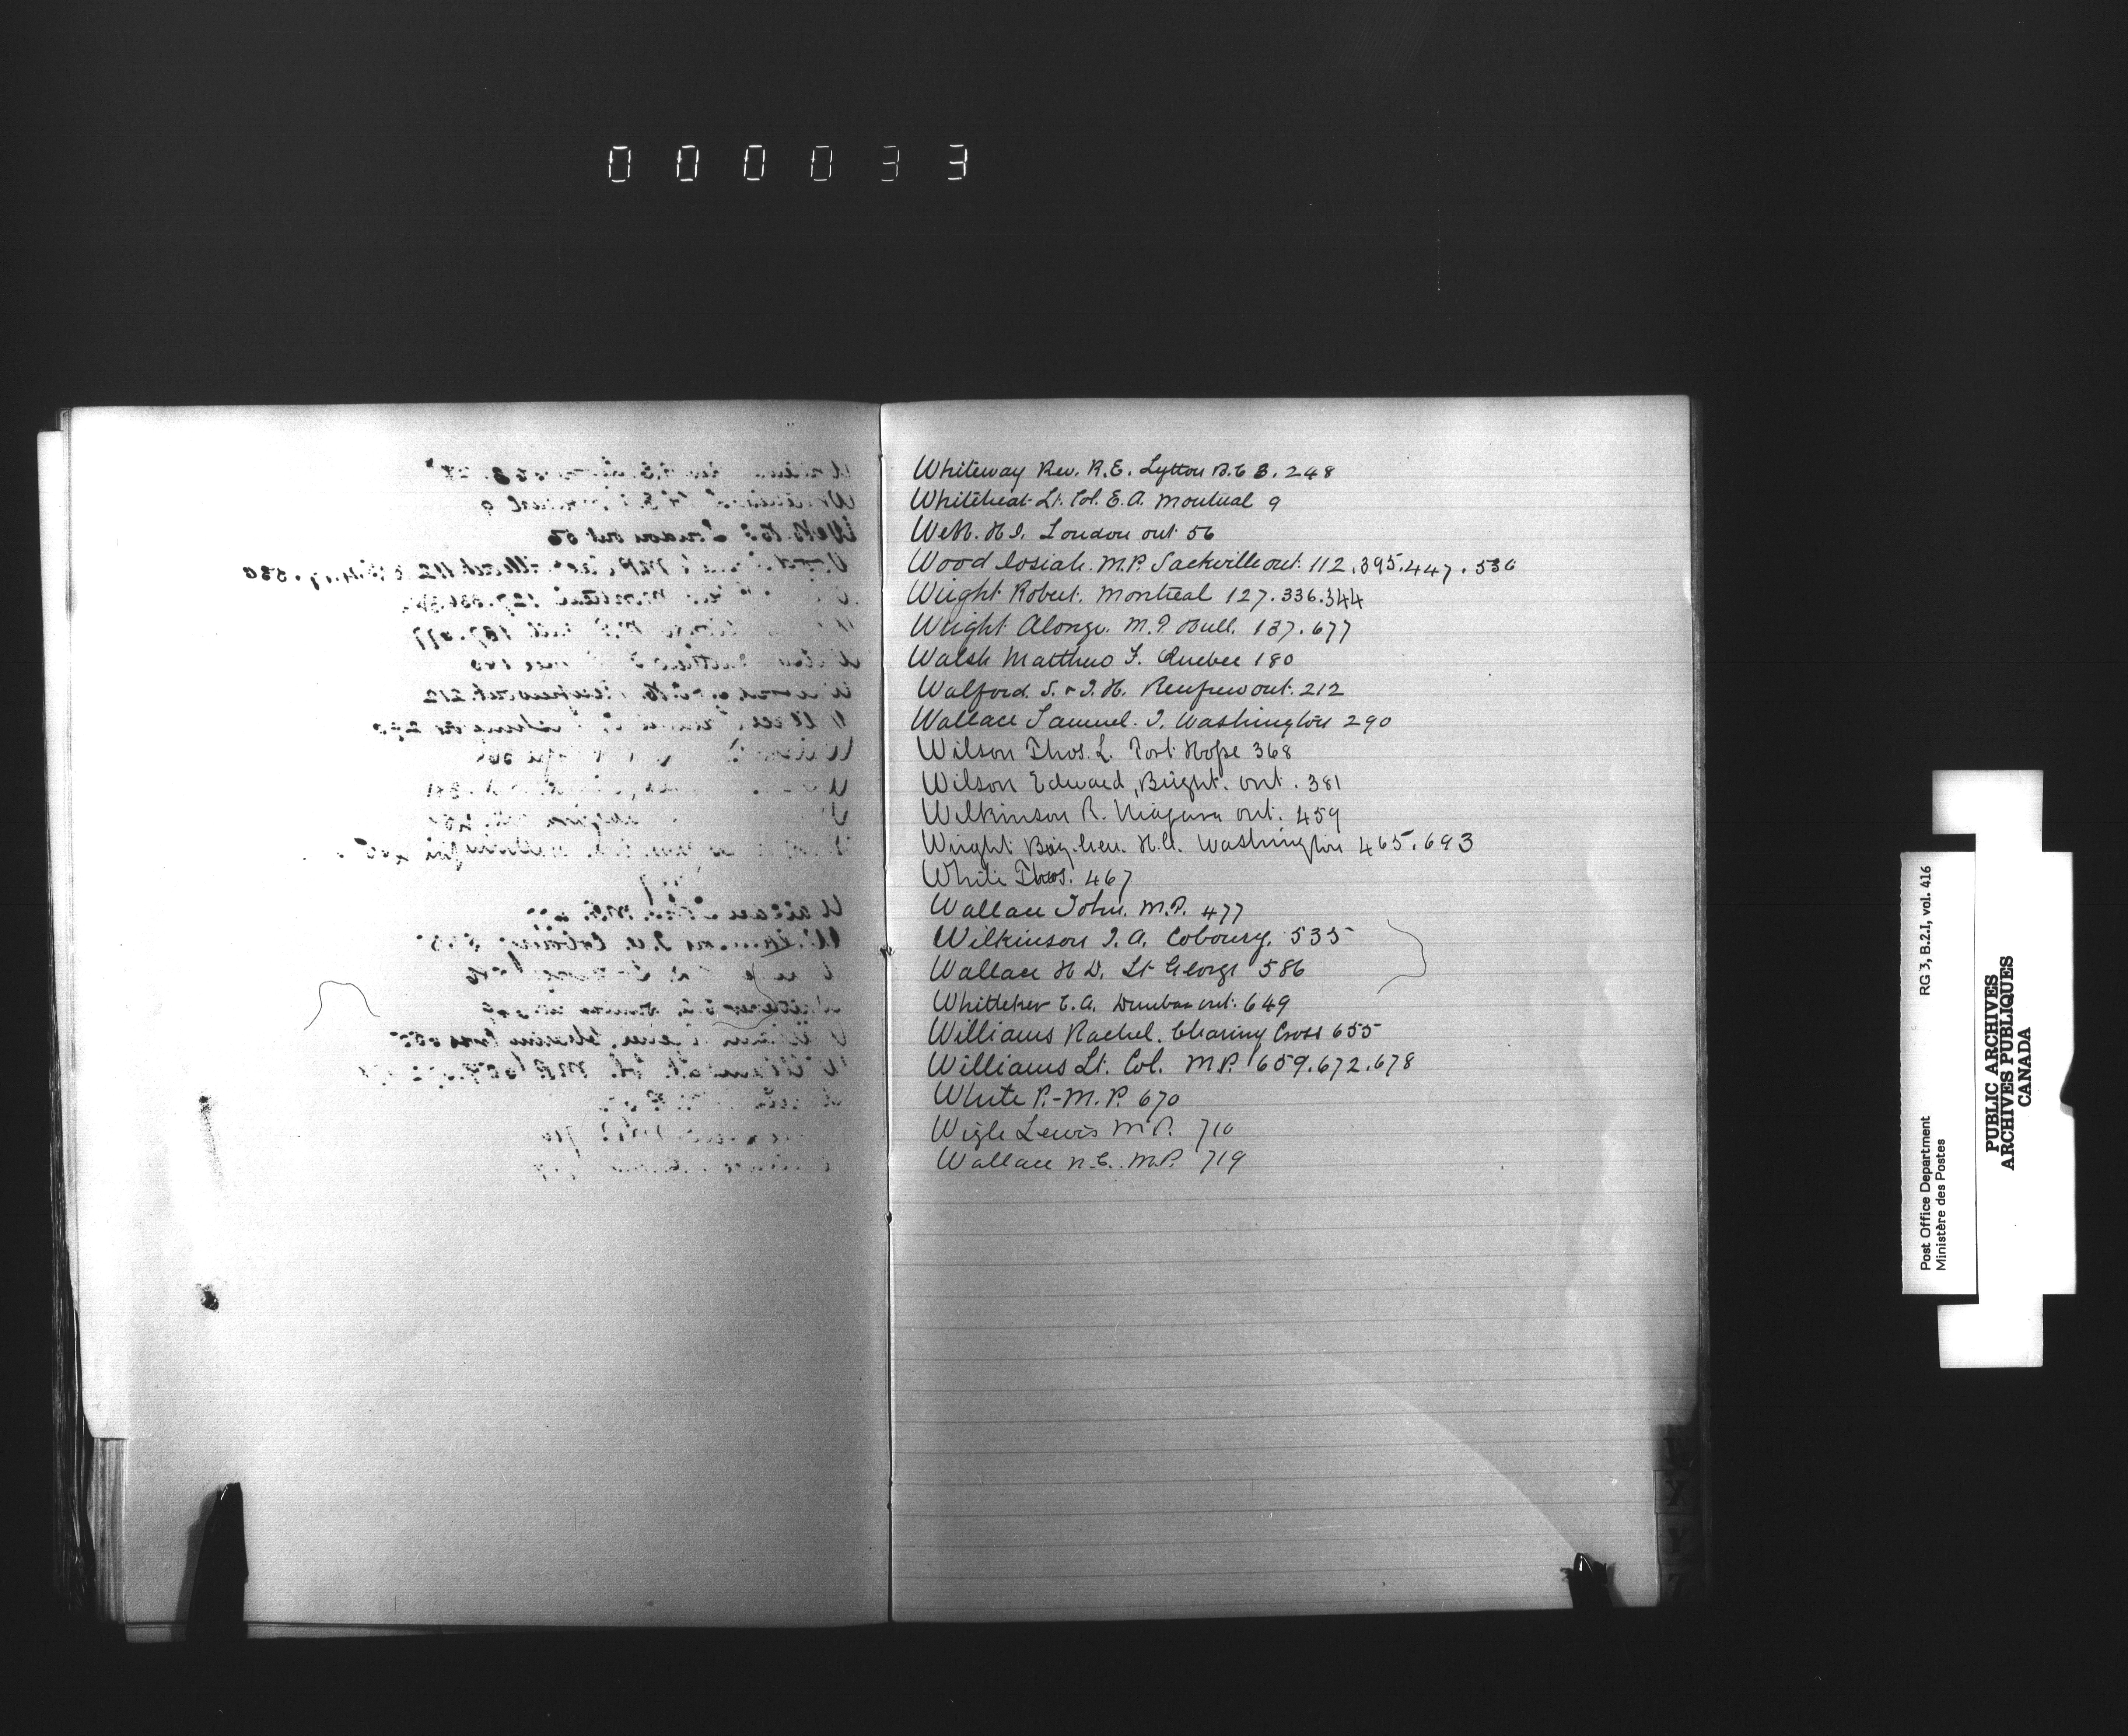 000033
Whiteway Rev. R.E. Lytton B.C B. 248
Whitehead Lt. Col. E.A. Montreal 9
Webb. H.I. London ont 56
Wood Josiah. M.P. Sackville ont. 112.395.447.530
Wright Robert. Montreal 127.336.344
Wright Alonzo. M.P. Hull. 137.677
Walsh Matthew F. Quebec 180
Walford. S. & J.H. Renfrew ont. 212
Wallace Samuel. J. Washington 290
Wilson Thos. L. Port Hope 368
Wilson Edward, Bright. ont. 381
Wilkinson R. Niagara ont. 459
Wright Brig. Gen. H.G. Washington 465.693
White Thos. 467
Wallace John. M.P. 477
Wilkinson J.A. Cobourg. 535
Wallace H D. St George 586
Whitteker C.A. Dunbar ont. 649
Williams Rachel. Charing Cross 655
Williams Lt. Col. M.P. 659.672.678
White P.-M.P. 670
Wigle Lewis M P. 710
Wallace N.C. M.P. 719
W
Y
Y
Z
RG 3, B.2.I, vol. 416
Post Office Department
Ministère des Postes
PUBLIC ARCHIVES
ARCHIVES PUBLIQUES
CANADA